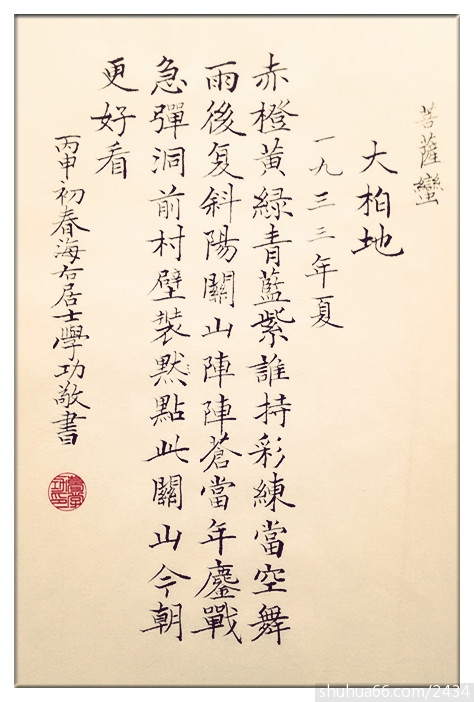 菩薩蠻
大柏地
一九三三年夏
赤橙黃綠青藍紫誰持彩練當空舞
雨後复斜陽關山陣陣蒼當年鏖戰
急彈洞前村壁裝黙點此關山今朝
更好看
丙申初春海右居士學功敬書
shuhua66.com/2434